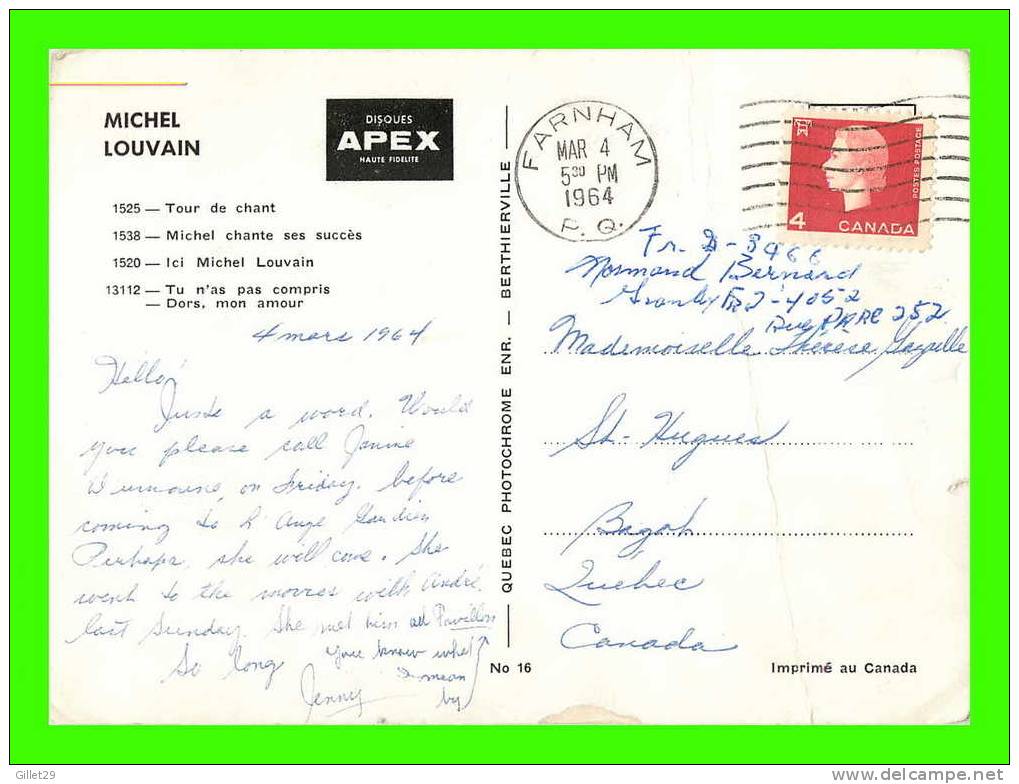 MICHEL
LOUVAIN
DISQUES
APEX
HAUTE FIDELITE
1525 — Tour de chant
1538 — Michel chante ses succès
1520 — Ici Michel Louvain
13112 — Tu n'as pas compris
— Dors, mon amour
4 mars 1964
Hello!
Juste a word. Would
you please call Janine
on Friday, before
coming to L'Ange Gardien
Perhaps, she will come. She
went to the movies with André
last Sunday. She met him at Pavillon
you know what
I mean
by
So long
Jenny
QUEBEC PHOTOCHROME ENR. — BERTHIERVILLE
No 16
FARNHAM
MAR 4
5 30 PM
1964
P. Q.
POSTES POSTAGE
4 CANADA
Fr. 2-8466
Normand Bernard
Granby FR2-4052
Rue PARC 252
Mademoiselle Thérèse
St-Hugues
Bagot
Québec
Canada
Imprimé au Canada
Gillet29
www.delcampe.net